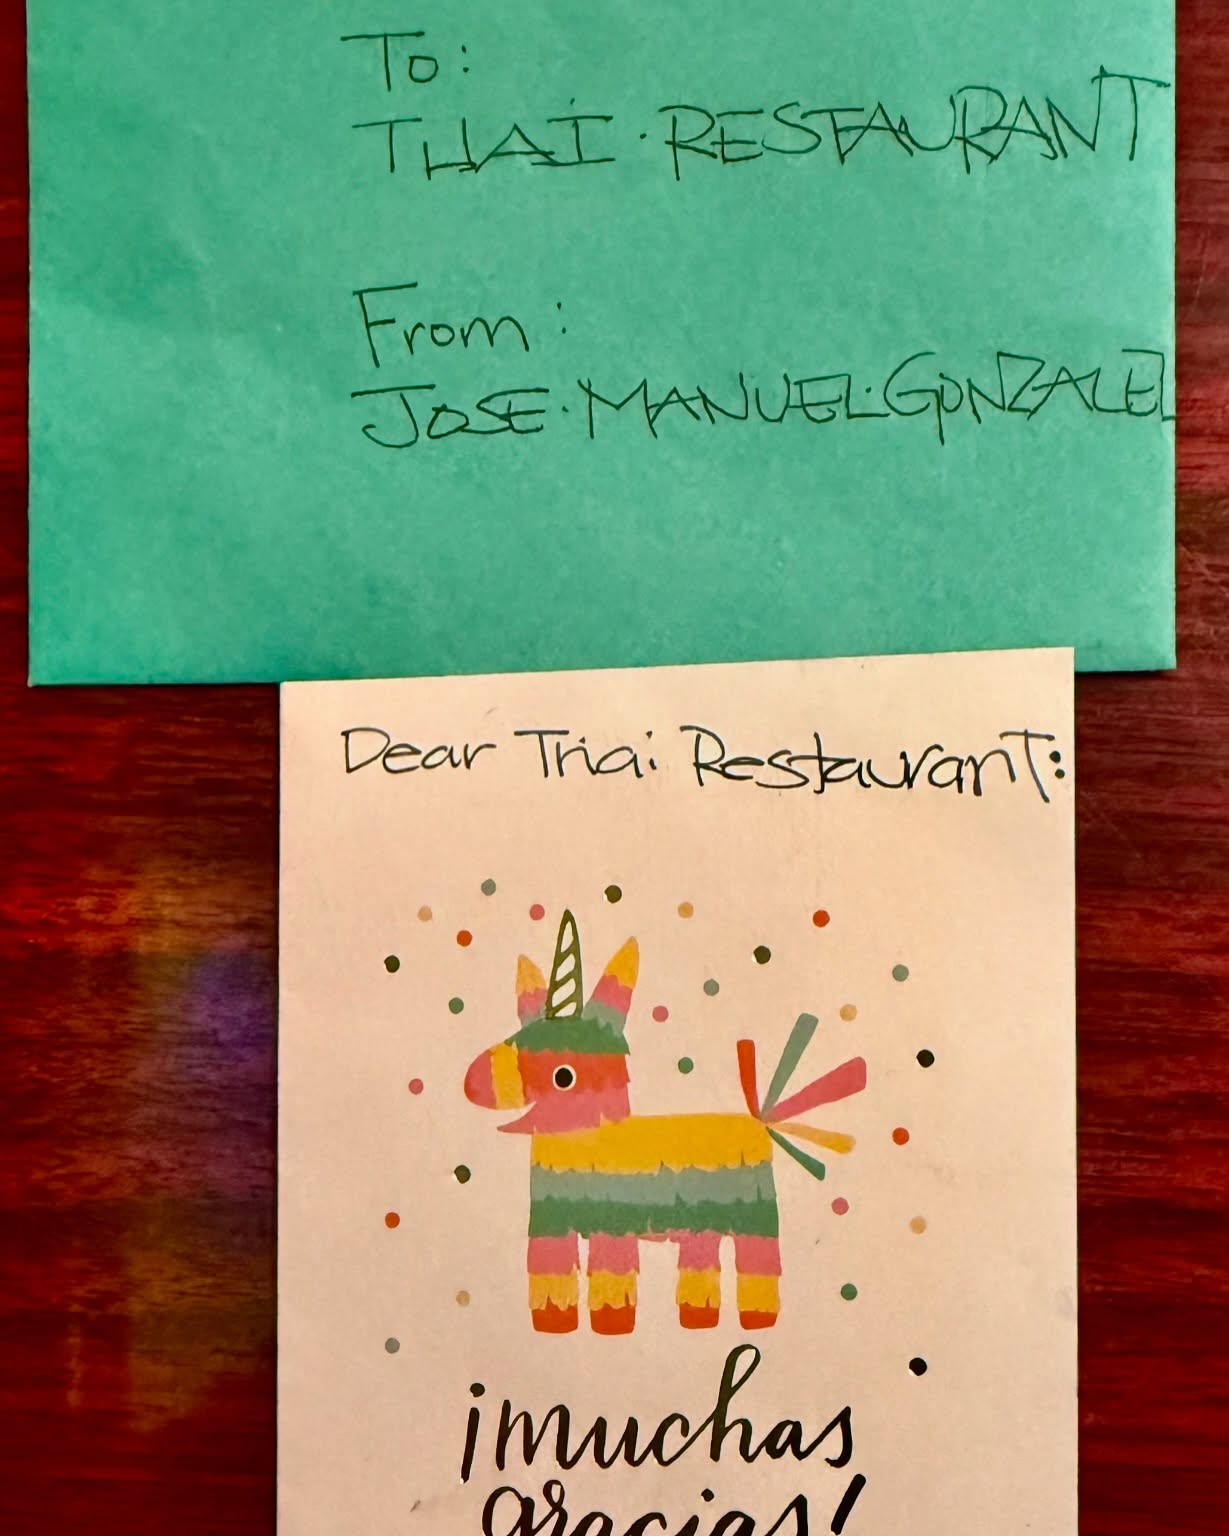 To:
THAI·RESTAURANT
From:
JOSE·MANUEL·GONZALEZ
Dear Thai Restaurant:
¡muchas
gracias!